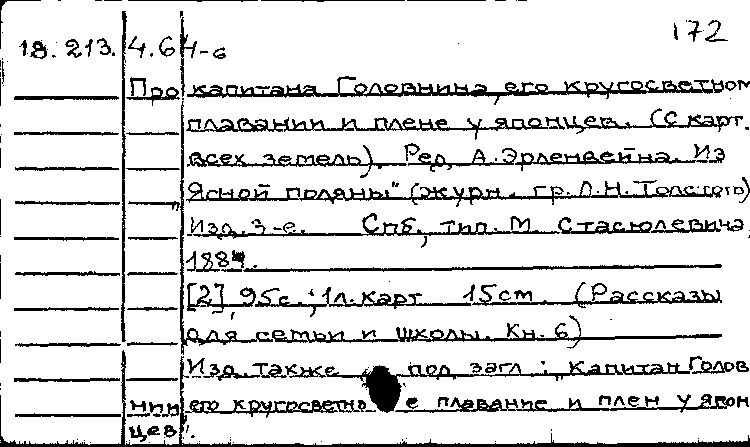 172
18.213. 4.6 4-6
Про капитана Головнина, его кругосветном
плавании и плене у японцев. (С карт.
всех земель). Ред. А. Эрленвейна. Из
"Ясной поляны" (журн. гр. Л.Н. Толстого)
Изд. 3-е. Спб., тип. М. Стасюлевича,
[2], 95с.; 1л. карт 15см. (Рассказы
для семьи и школы. Кн. 6)
Изд. также под загл.: "Капитан Голов
нин его кругосветное плавание и плен у япон
цев".